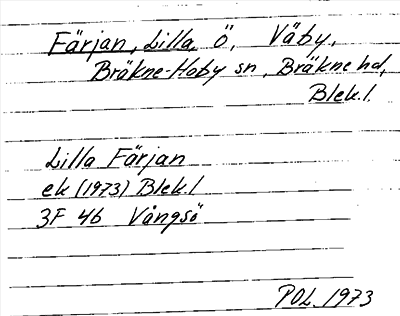 Färjan, Lilla Ö, Väby,
Bräkne-Hoby sn, Bräkne hd,
Blek.l.
Lilla Färjan
ek (1973) Blek.l
3F 4b Vångsö
POL. 1973